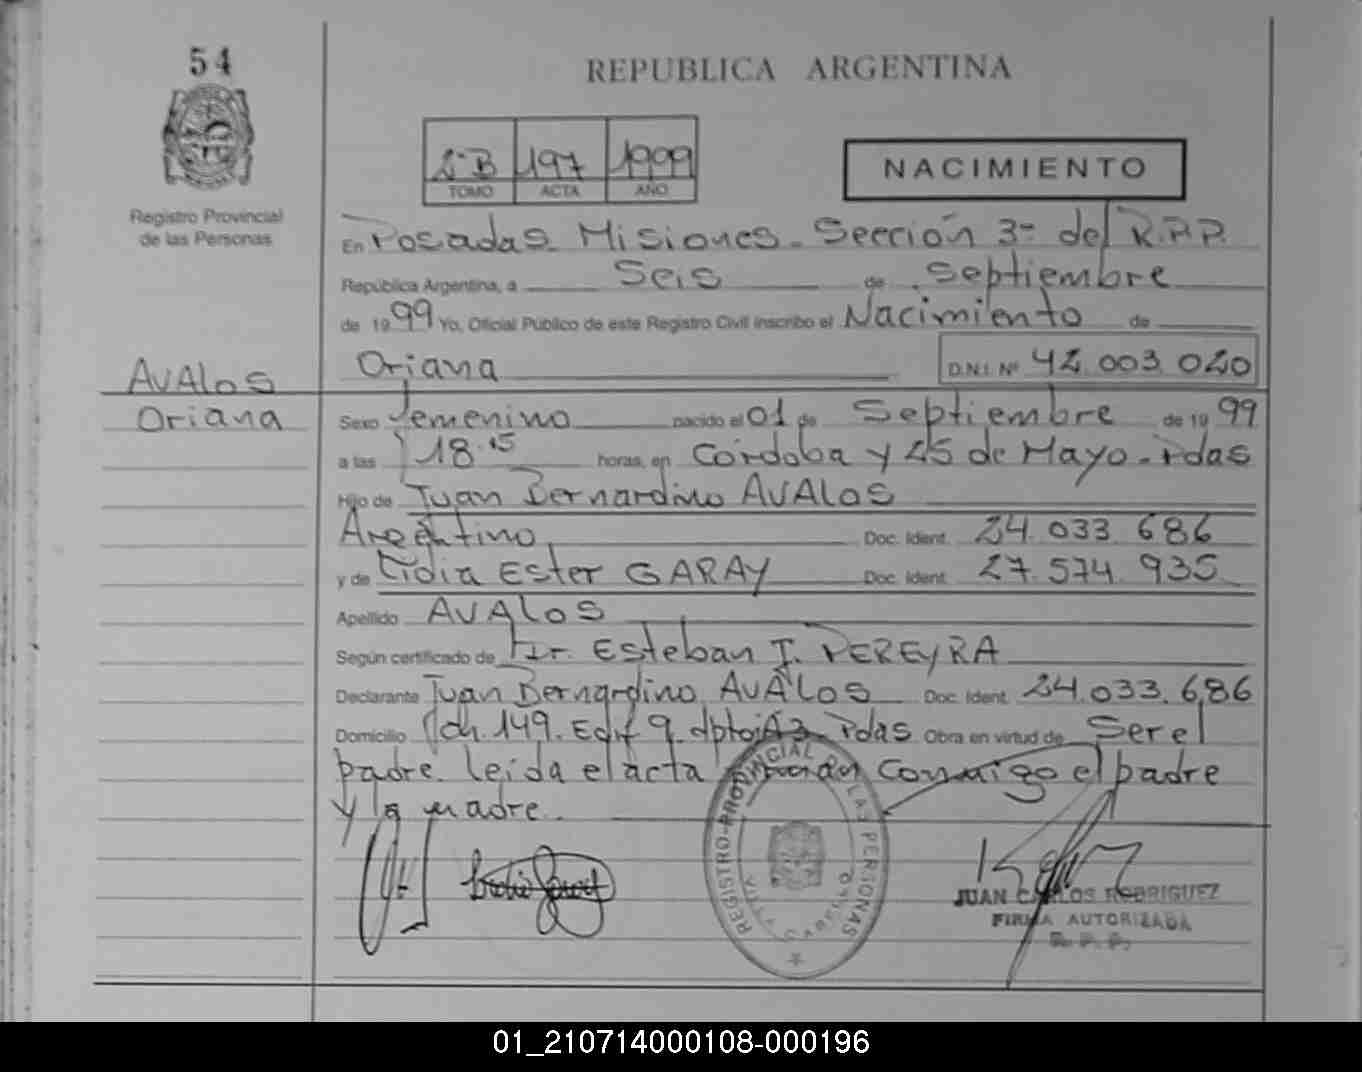 54
REPUBLICA ARGENTINA
2°B 197 1999
TOMO ACTA AÑO
NACIMIENTO
Registro Provincial
de las Personas
En Posadas Misiones - Sección 3ª del R.P.P.
República Argentina, a Seis de Septiembre
de 1999 Yo, Oficial Público de este Registro Civil inscribo el Nacimiento de
Oriana D.N.I. Nº 42.003.020
AVAlos
Oriana
Sexo femenino nacido el 01 de Septiembre de 1999
a las 18.15 horas, en Córdoba y 25 de Mayo - Pdas
Hijo de Juan Bernardino AVAlos
Argentino Doc. Ident. 24.033.686
y de Lidia Ester GARAY Doc. Ident. 27.574.935
Apellido AVAlos
Según certificado de Dr. Esteban J. PEREYRA
Declarante Juan Bernardino AVALOS Doc. Ident. 24.033.686
Domicilio Ch. 149. Edif 9. dpto A3 - Pdas Obra en virtud de Ser el
padre. leída el acta firman conmigo el padre
y la madre.
REGISTRO PROVINCIAL DE LAS PERSONAS
JUAN CARLOS RODRIGUEZ
FIRMA AUTORIZADA
R. P. P.
01_210714000108-000196